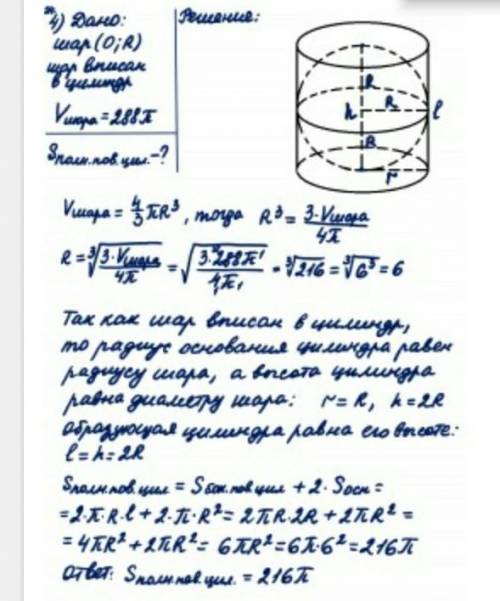 4) Дано:
Решение:
шар (O; R)
шар вписан
в цилиндр
Vшара = 288π
Sполн.пов.цил. - ?
R
h
R
l
R
r
Vшара = 4/3 πR³, тогда R³ = 3·Vшара / 4π
R = ∛(3·Vшара / 4π) = √(3·288π / 4π) = ∛216 = ∛6³ = 6
Так как шар вписан в цилиндр,
то радиус основания цилиндра равен
радиусу шара, а высота цилиндра
равна диаметру шара: r = R, h = 2R
Образующая цилиндра равна его высоте:
l = h = 2R
Sполн.пов.цил = Sбок.пов.цил + 2·Sосн =
= 2·π·R·l + 2·π·R² = 2πR·2R + 2πR² =
= 4πR² + 2πR² = 6πR² = 6π·6² = 216π
Ответ: Sполн.пов.цил. = 216π